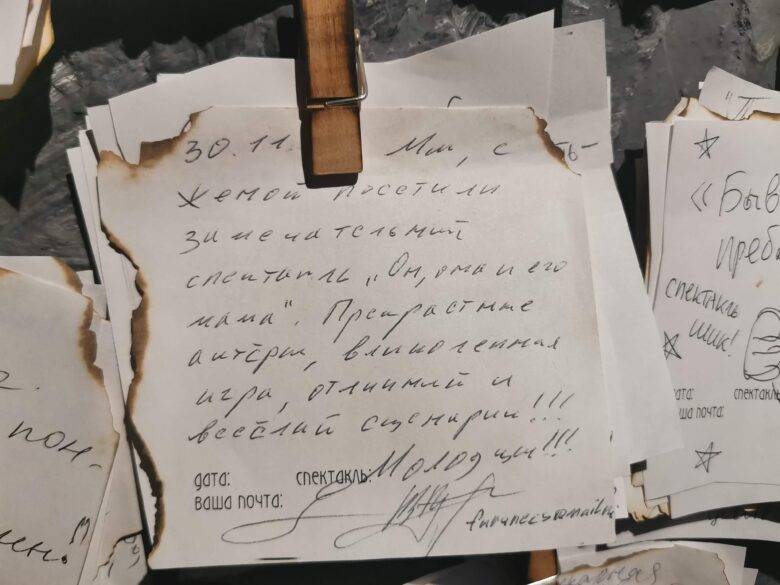 30.11. Мы, с
женой посетили
замечательный
спектакль „Он, она и его
мама“. Прекрастные
актёры, великоленная
игра, отличный и
весёлый сценарий!!!
Молодцы!!!
дата: спектакль:
ваша почта:
« Быв
преб
спектакль
шик!
дата: спектакль
ваша почта:
пон-